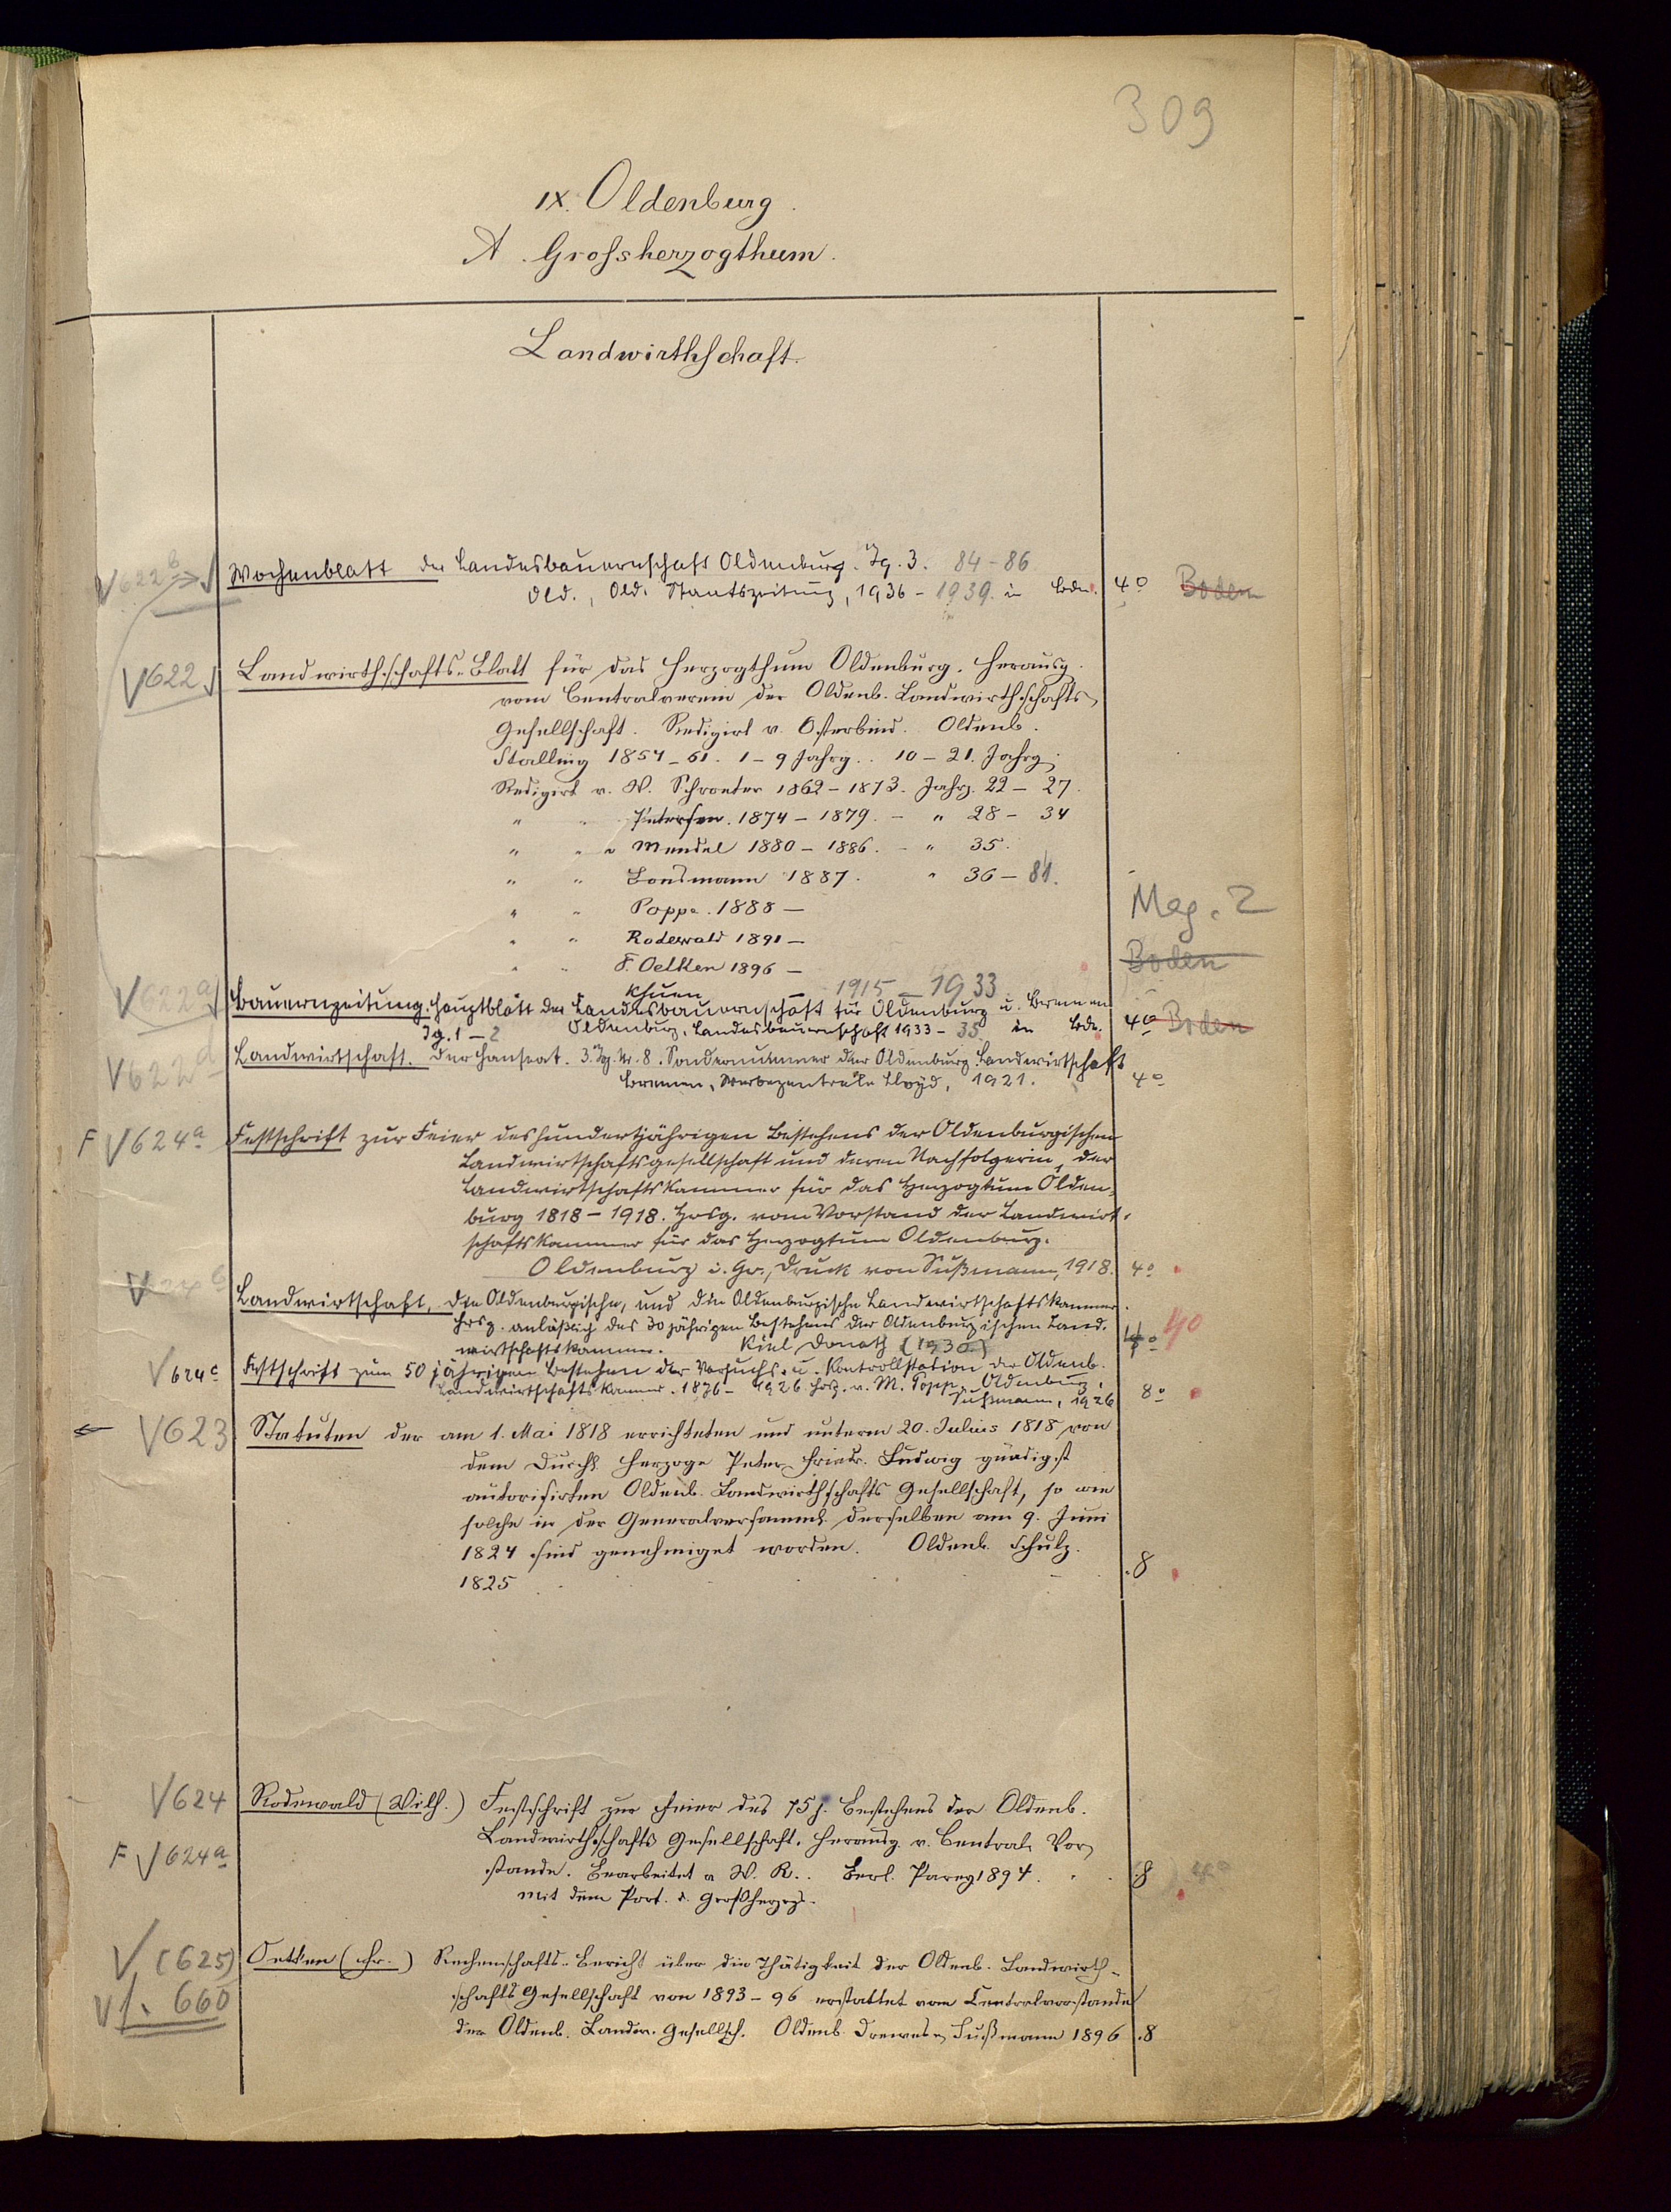 309
IX. Oldenburg.
A. Grossherzogthum.
Landwirthschaft.
V622b Wochenblatt der Landesbauernschaft Oldenburg. Jg. 3. 84-86
Old., Old. Staatszeitung, 1936 - 1939. in Bdn. 4o Boden
V622 Landwirthschafts-Blatt für das Herzogthum Oldenburg. Herausg.
vom Centralverein der Oldenb. Landwirthschafts
Gesellschaft. Redigirt v. Osterbind. Oldenb.
Stalling 1854-61. 1-9 Jahrg.. 10-21. Jahrg.
Redigirt v. W. Schroeter 1862-1873. Jahrg. 22-27.
" " Petersen. 1874-1879. - " 28-34
" " " Mendel 1880-1886. - " 35.
" " Lonsmann 1887. " 36-81.
" " Poppe. 1888 - Mag. 2
" " Rodewald 1891 -
" " F. Oetken 1896 - Boden
Khuen - 1915-1933
V622a Bauernzeitung. Hauptblatt der Landesbauernschaft für Oldenburg u. Bremen
Jg. 1-2 Oldenburg, Landesbauernschaft 1933-35 in Bdn. 4o Boden
V622d Landwirtschaft. Der Hanseat. 3. Jg. Nr. 8. Sondernummer der Oldenburg. Landwirtschaft
Bremen, Werbezentrale Lloyd, 1921. 4o
F V624a Festschrift zur Feier des hundertjährigen Bestehens der Oldenburgischen
Landwirtschaftsgesellschaft und deren Nachfolgerin, der
Landwirtschaftskammer für das Herzogtum Olden-
burg 1818-1918. Hrsg. vom Vorstand der Landwirt-
schaftskammer für das Herzogtum Oldenburg.
Oldenburg i. Gr., Druck von Sußmann, 1918. 4o
Landwirtschaft, Die Oldenburgische, und die Oldenburgische Landwirtschaftskammer.
Hrsg. anläßlich des 30 jährigen Bestehens der Oldenburgischen Land-
wirtschaftskammer. Kiel Donath (1930) 4o
V624c Festschrift zum 50 jährigen Bestehen der Versuchs- u. Kontrollstation der Oldenb.
Landwirtschaftskammer. 1876-1926 hrsg. v. M. Popp. Oldenburg,
Sußmann, 1926 8o
V623 Statuten der am 1. Mai 1818 errichteten und unterm 20. Julius 1818 von
dem Durchl. Herzoge Peter Friedr. Ludwig gnädigst
autorisirten Oldenb. Landwirthschafts Gesellschaft, so wie
solche in der Generalversamml. derselben am 9. Juni
1824 sind genehmiget worden. Oldenb. Schulz.
1825 . 8
V624 Rodewald (Wilh.) Festschrift zur Feier des 75 j. Bestehens der Oldenb.
F V624a Landwirthschafts Gesellschaft. Herausg. v. Central Vor
stande. Bearbeitet v W. R.. Berl. Parey 1894. . 8
mit dem Port. d. Großherzgs.
V (625) Oetken (Fr.) Rechenschafts-Bericht über die Thätigkeit der Oldenb. Landwirth-
V f. 660 schafts Gesellschaft von 1893-96 erstattet vom Centralvorstande
der Oldenb. Landw. Gesellsch. Oldenb. Drewes Sußmann 1896 . 8